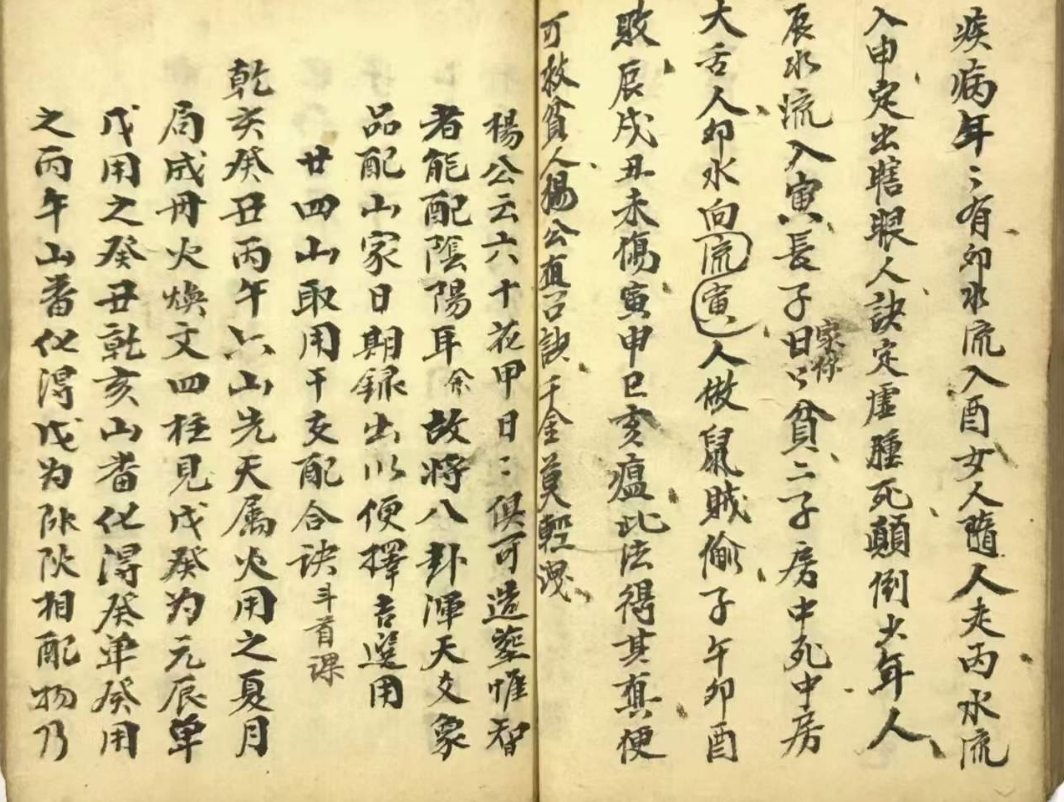 疾病年〻有卯水流入酉女人隨人走丙水流
入申定出瞎眼人訣定虛腫死顛倒少年人
辰水流入寅長子日〻貧二子房中死中房
家你
大舌人卯水向流寅人做鼠賊偷子午卯酉
敗辰戌丑未傷寅申巳亥瘟此法得其真便
可救貧人楊公直口訣千金莫輕洩
楊公云六十花甲日〻俱可造塟惟智
者能配陰陽耳余故將八卦渾天爻象
品配山家日期錄出以便擇吉選用
廿四山取用干支配合訣斗首課
乾亥癸丑丙午六山先天属火用之夏月
局成冊火煥文四柱見戊癸为元辰单
戊用之癸丑乾亥山畨化淂癸单癸用
之丙午山畨化淂戊为陰陽相配物乃